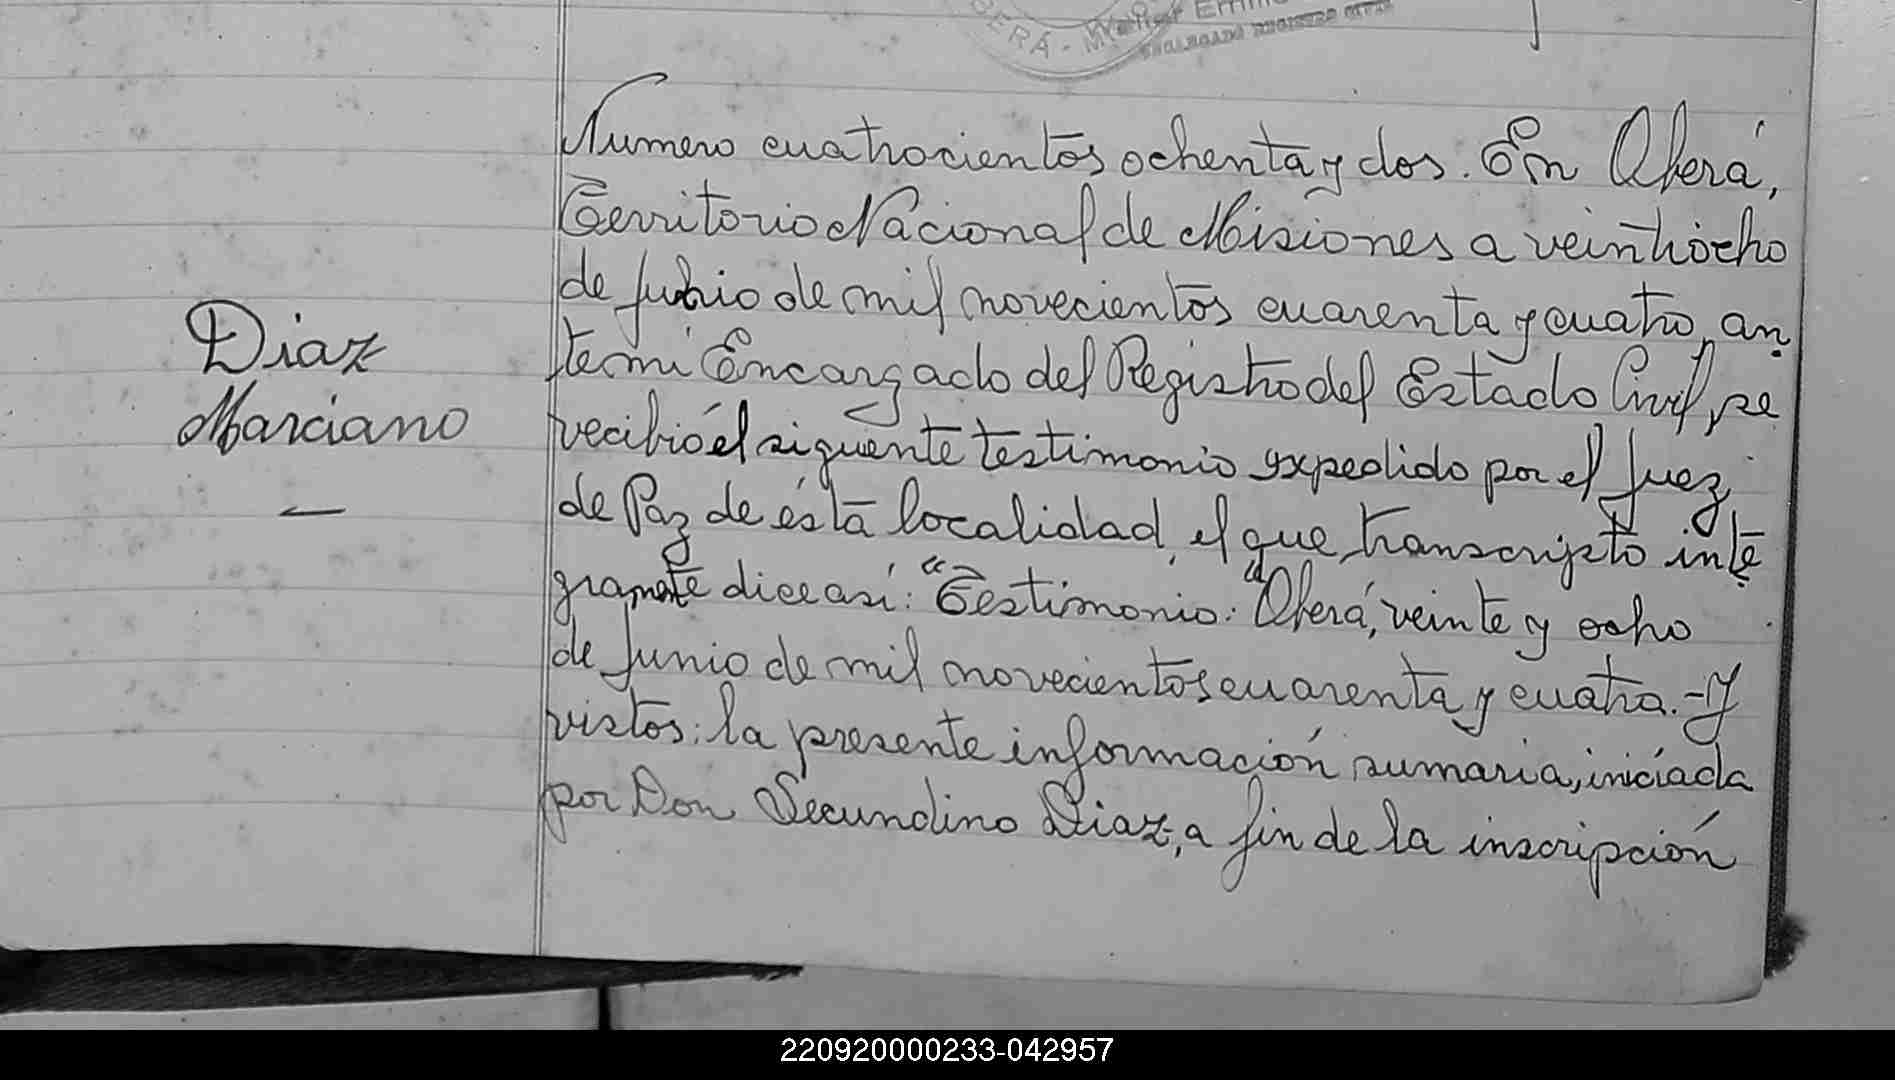 OBERÁ - M
Numero cuatrocientos ochenta y dos. En Oberá,
Territorio Nacional de Misiones a veintiocho
Diaz
Marciano
—
de Junio de mil novecientos cuarenta y cuatro, an
te mi Encargado del Registro del Estado Civil, se
recibió el siguente testimonio expedido por el Juez
de Paz de ésta localidad, el que, transcripto inte
gramente dice asi: "Testimonio: "Oberá, veinte y ocho
de Junio de mil novecientos cuarenta y cuatro. - Y
vistos: la presente información sumaria, iniciada
por Don Secundino Diaz, a fin de la inscripción
220920000233-042957